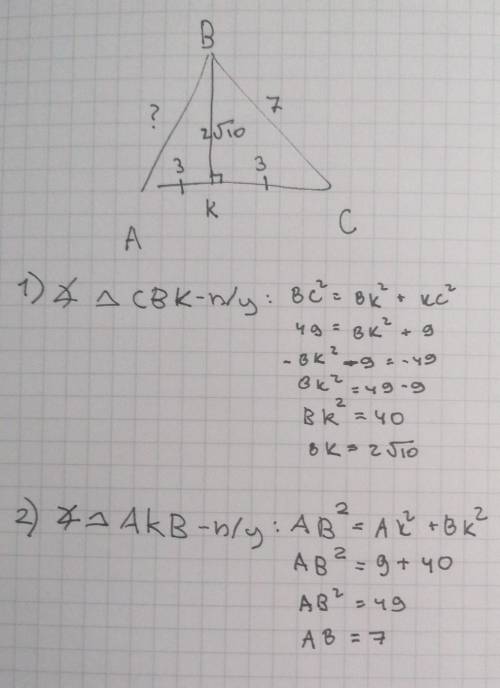 B
? 7
2√10
3 3
A K C
1) ∡ △ CBK - п/у: BC² = BK² + KC²
49 = BK² + 9
-BK² - 9 = -49
BK² = 49 - 9
BK² = 40
BK = 2√10
2) ∡ △ AKB - п/у: AB² = AK² + BK²
AB² = 9 + 40
AB² = 49
AB = 7